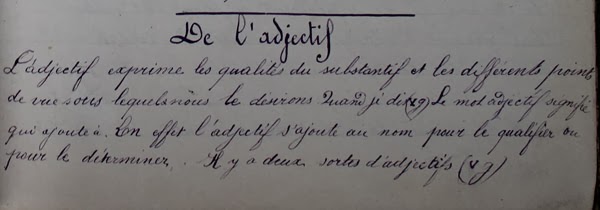 De l'adjectif
L'adjectif exprime les qualités du substantif et les différents points
de vue sous lequels nous le désirons Quand ji dis (vg) Le mot adjectif signifie
qui ajoute à. En effet l'adjectif s'ajoute au nom pour le qualifier ou
pour le déterminer. Il y a deux sortes d'adjectifs (vg)